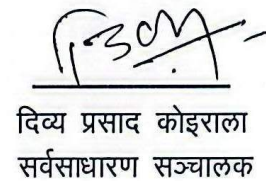 दिव्य प्रसाद कोइराला
सर्वसाधारण सञ्चालक